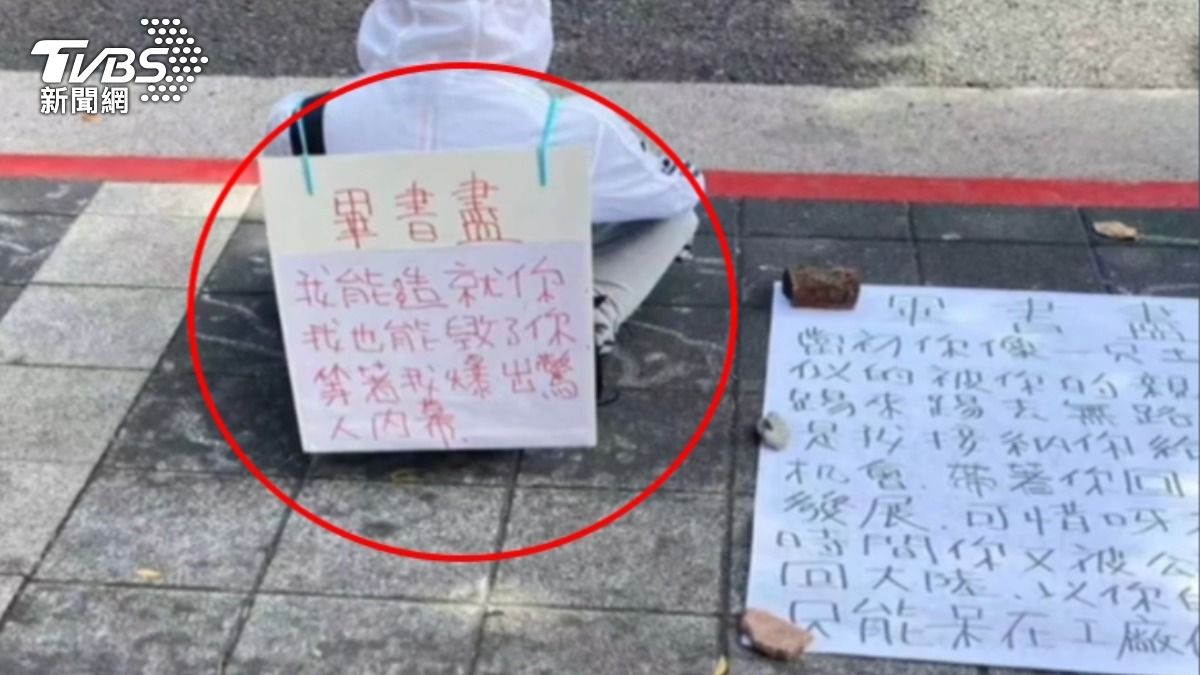 TVBS
新聞網
畢書盡
我能造就你
我也能毀了你.
等著我爆出驚
人內幕.
畢書盡
當初你像一
似的被你的親
踢來踢去無路
是我接納你給
机會.帶著你回
發展.可惜呀
時間你又被公
回大陸.以你
只能呆在工廠